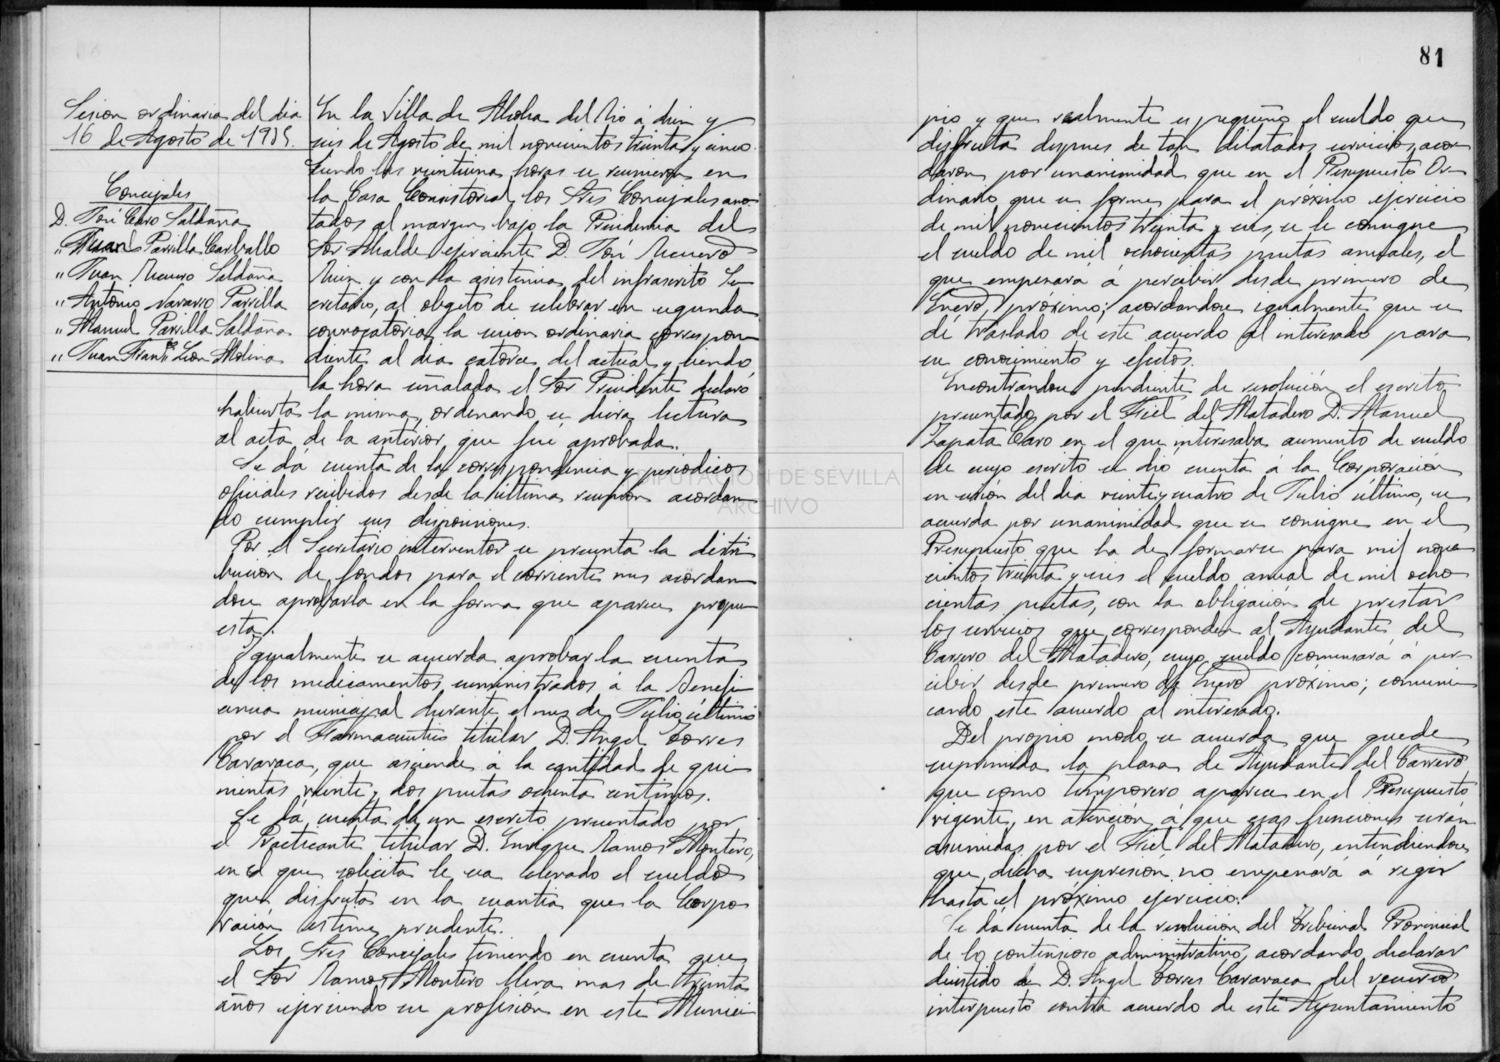 Sesion ordinaria del dia
16 de Agosto de 1935.
Concejales
D. José Caro Saldaña
„ Juan Parrilla Carballo
„ Juan Recuero Saldaña
„ Antonio Navarro Parrilla
„ Manuel Parrilla Saldaña
„ Juan Franco Leon Molina
En la Villa de Alcolea del Rio á diez y
seis de Agosto de mil novecientos treinta y cinco
siendo las veintiuna horas se reunieron en
la Casa Consistorial los Sres Concejales ano
tados al margen bajo la Presidencia del
Sor Alcalde ejerciente D. José Recuero
Ruiz y con la asistencia del infrascrito Se
cretario, al objeto de celebrar en segunda
convocatoria la sesion ordinaria correspon
diente al dia catorce del actual y siendo
la hora señalada el Sor Presidente declaró
habierta la misma, ordenando se diera lectura
al acta de la anterior, que fué aprobada.
Se dá cuenta de la correspondencia y periodicos
oficiales recibidos desde la última reunión acordan
do cumplir sus disposiciones.
Por el Secretario interventor se presenta la distri
bucion de fondos para el corriente mes acordan
dose aprobarla en la forma que aparece propu
esta.
Ygualmente se acuerda aprobar la cuenta
de los medicamentos suministrados á la Benefi
cencia municipal durante el mes de Julio último
por el Farmaceutico titular D. Angel Torres
Caravaca, que asciende a la cantidad de qui
nientas veinte y dos pesetas ochenta centimos.
Se dá cuenta de un escrito presentado por
el Practicante titular D. Enrique Ramos Montero,
en el que solicita le sea elevado el sueldo
que disfruta en la cuantia que la Corpo
ración estime prudente.
Los Sres Concejales teniendo en cuenta que
el Sor Ramos Montero lleva mas de treinta
años ejerciendo su profesión en este Munici
81
pio y que realmente es pequeño el sueldo que
disfruta despues de tan dilatados servicios, acor
daron por unanimidad que en el Presupuesto Or
dinario que se forme para el próximo ejercicio
de mil novecientos treinta y seis, se le consigne
el sueldo de mil ochocientas pesetas anuales, el
que empezará á percibir desde primero de
Enero próximo; acordandose igualmente que se
dé traslado de este acuerdo al interesado para
su conocimiento y efectos.
Encontrandose pendiente de resolución el escrito
presentado por el Fiel del Matadero D. Manuel
Zapata Caro en el que interesaba aumento de sueldo
de cuyo escrito se dió cuenta á la Corporación
en sesión del dia veinte y cuatro de Julio último, se
acuerda por unanimidad que se consigne en el
Presupuesto que ha de formarse para mil nove
cientos treinta y seis el sueldo anual de mil ocho
cientas pesetas, con la obligación de prestar
los servicios que corresponden al Ayudante del
Carrero del Matadero, cuyo sueldo comenzará á per
cibir desde primero de Enero próximo; comuni
cando este acuerdo al interesado.
Del propio modo se acuerda que quede
suprimida la plaza de Ayudante del Carrero
que como temporero aparece en el Presupuesto
vigente, en atención á que esas funciones serán
asumidas por el Fiel del Matadero, entendiendose
que dicha supresión no empezará á regir
hasta el próximo ejercicio.
Se dá cuenta de la resolución del Tribunal Provincial
de lo contencioso administrativo, acordando declarar
desistido á D. Angel Torres Caravaca del recurso
interpuesto contra acuerdo de este Ayuntamiento
DIPUTACIÓN DE SEVILLA
ARCHIVO